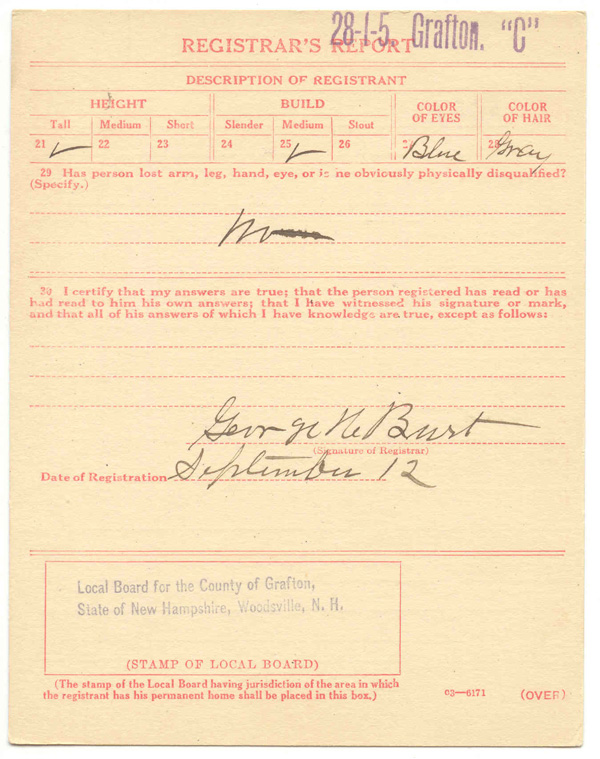 28-1-5 Grafton. "C"
REGISTRAR'S REPORT
DESCRIPTION OF REGISTRANT
HEIGHT BUILD COLOR OF EYES COLOR OF HAIR
Tall Medium Short Slender Medium Stout
21 ✓ 22 23 24 25 ✓ 26 Blue 28 Gray
29 Has person lost arm, leg, hand, eye, or is he obviously physically disqualified?
(Specify.)
No
30 I certify that my answers are true; that the person registered has read or has
had read to him his own answers; that I have witnessed his signature or mark,
and that all of his answers of which I have knowledge are true, except as follows:
George H Burt
(Signature of Registrar)
Date of Registration September 12
Local Board for the County of Grafton,
State of New Hampshire, Woodsville, N. H.
(STAMP OF LOCAL BOARD)
(The stamp of the Local Board having jurisdiction of the area in which
the registrant has his permanent home shall be placed in this box.)
03—6171 (OVER)